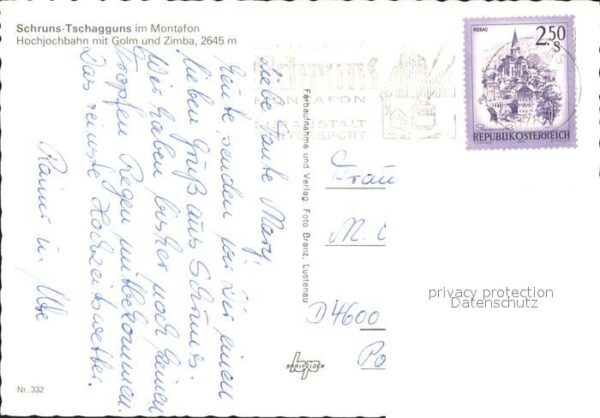 Schruns-Tschagguns im Montafon
Hochjochbahn mit Golm und Zimba, 2645 m
MURAU
2.50
S
REPUBLIK ÖSTERREICH
Schruns
MONTAFON
SPORT
Liebe Tante Mary!
Heute senden wir Dir einen
lieben Gruß aus Schruns.
Wir haben bisher noch keinen
Tropfen Regen mitbekommen.
Das reinste Hochzeitswetter.
Rainer u. Ute
Farbaufnahme und Verlag: Foto Branz, Lustenau
Frau
M.
D 4600
privacy protection
Datenschutz
Nr. 332